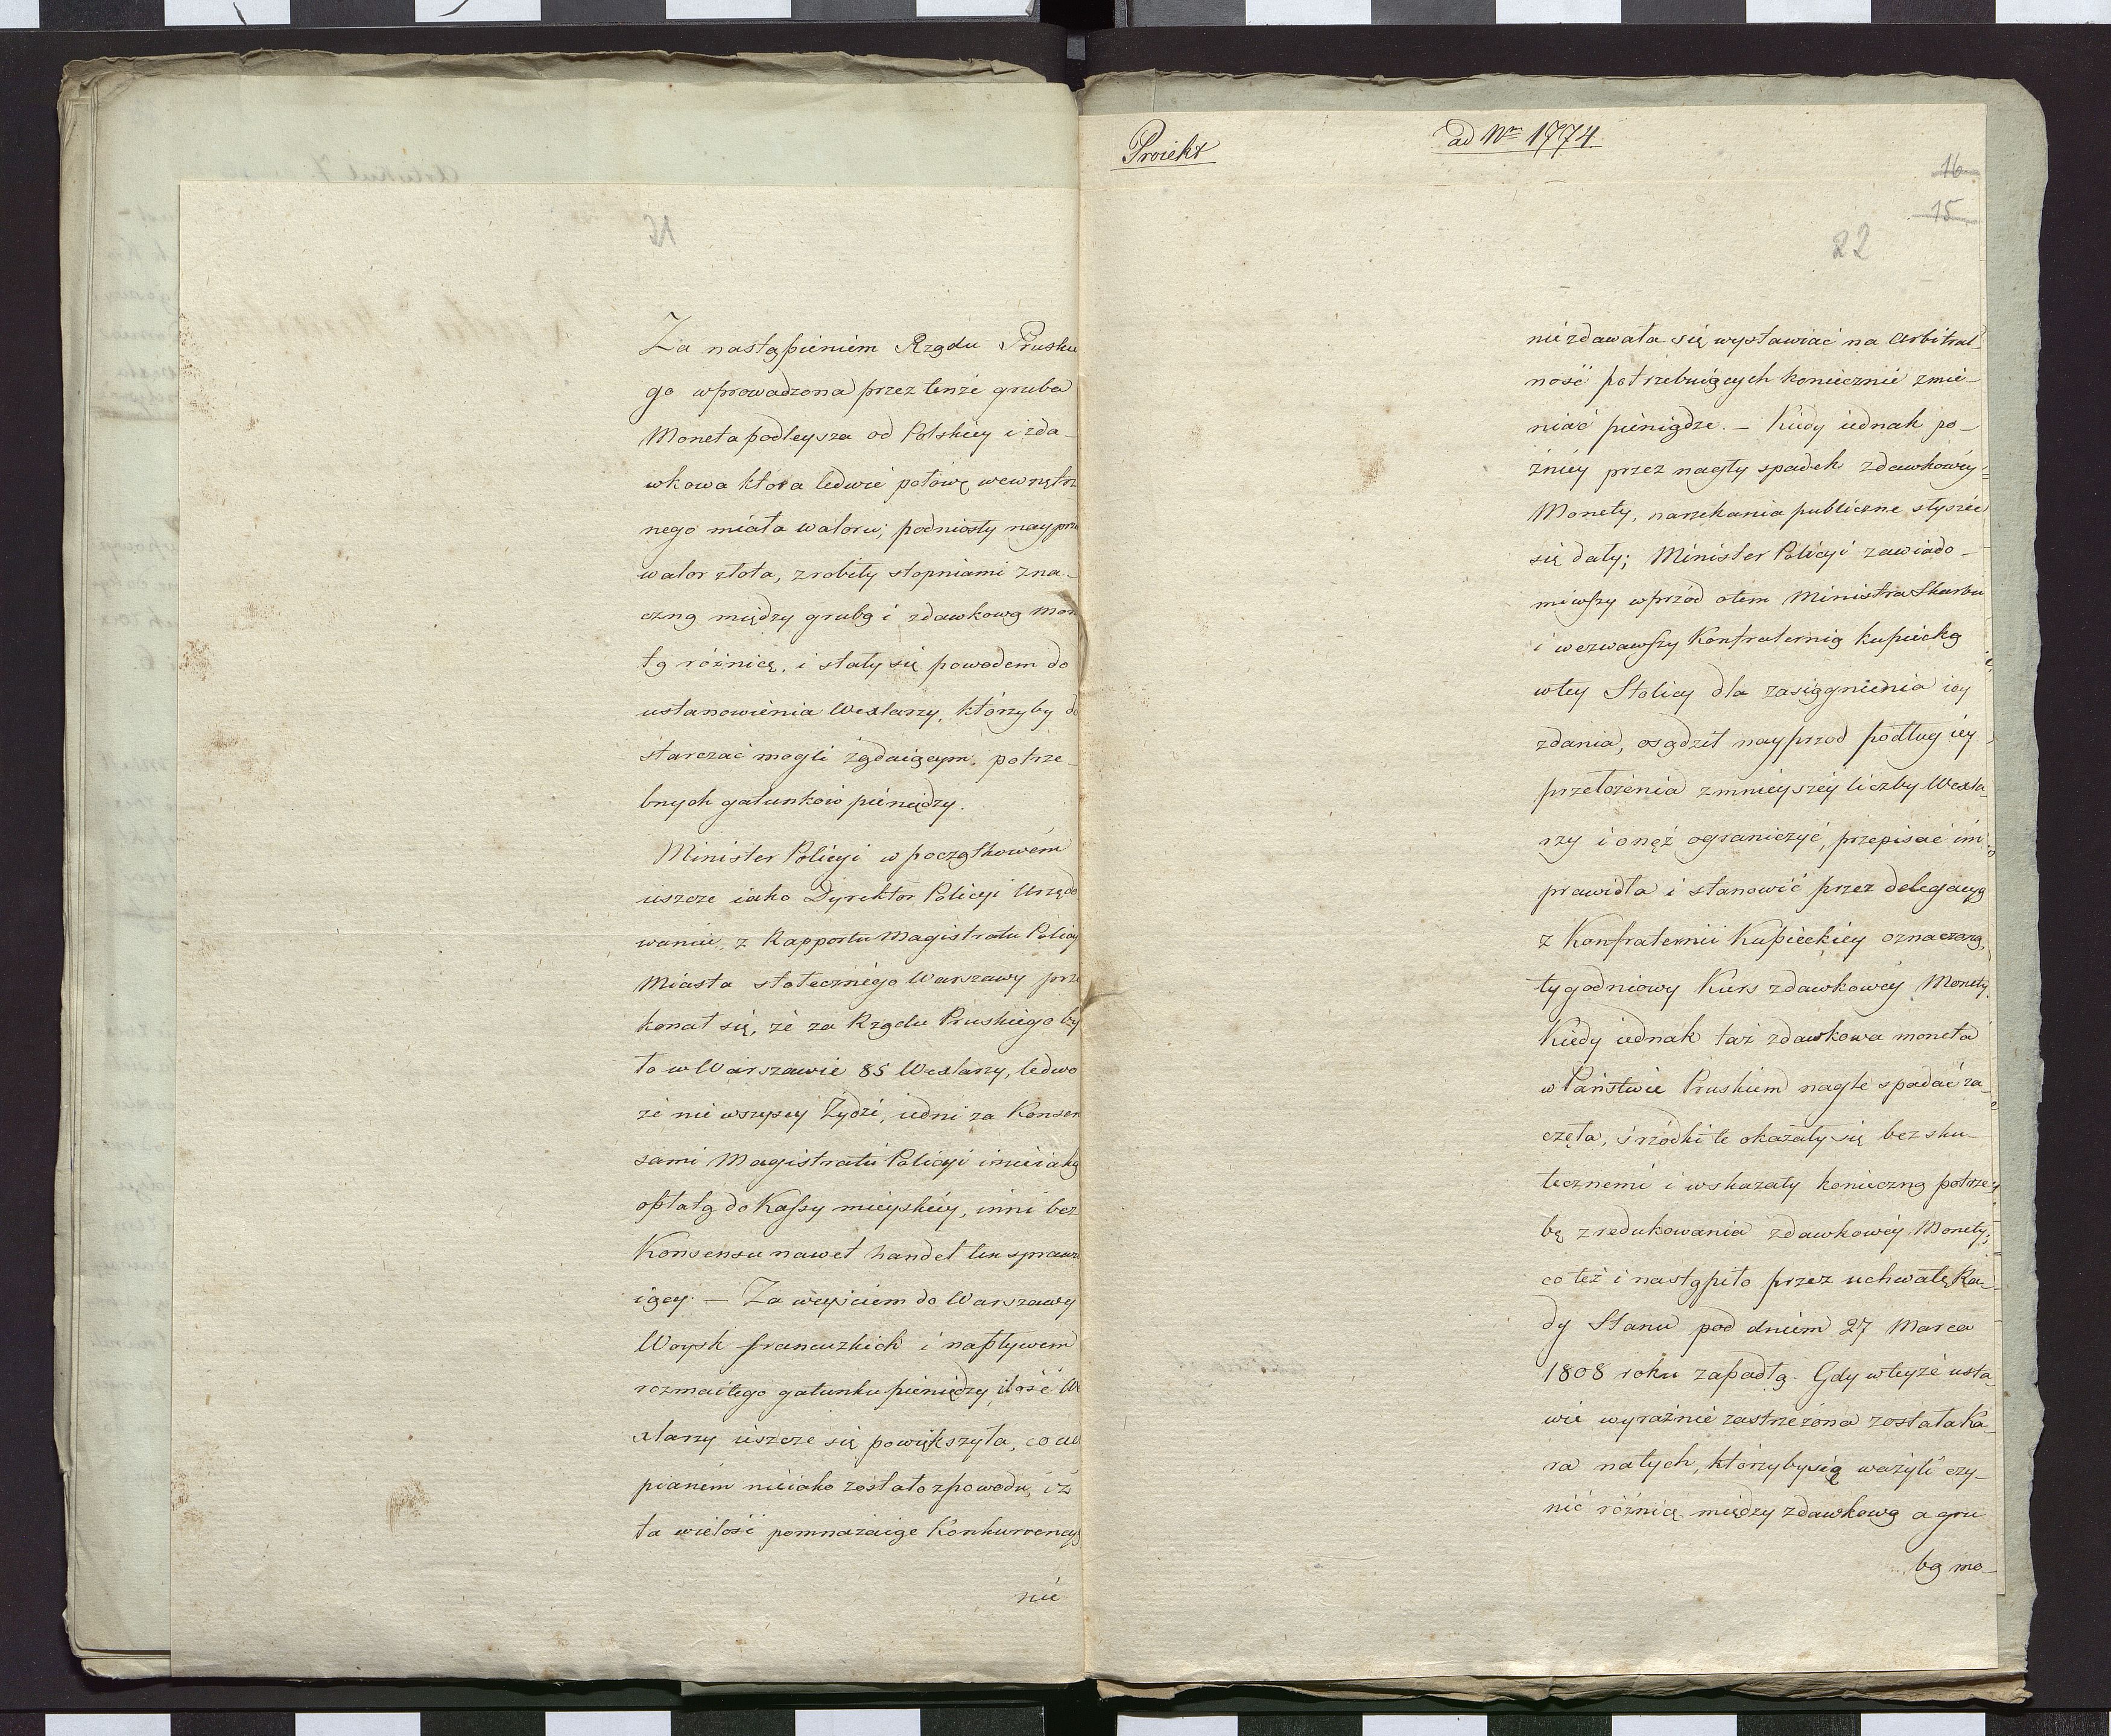 21
Za nastąpieniem Rządu Pruskie
go wprowadzona przez tenże gruba
Moneta podleysza od Polskiey i zda-
wkowa która ledwie połowę wewnętrz
nego miała waloru; podniosły nayprzo
walor złota, zrobiły stopniami zna-
czną między grubą i zdawkową Mon
tą różnicę, i stały się powodem do
ustanowienia Wexlarzy, którzyby do
starczać mogli żądaiącym, potrze-
bnych gatunków pieniędzy.
Minister Policyi w początkowém
ieszcze iako Dyrektor Policyi Urzędo
waniu, z Rapportu Magistratu Policy
Miasta stołecznégo Warszawy prze
konał się, że za Rządu Pruskiego by
ło w Warszawie 85 Wexlarzy, ledwo
że nie wszyscy Żydzi, iedni za Konsen
sami Magistratu Policyi i nieiaką
opłatą do Kassy mieyskiéy, inni bez
Konsensu nawet handel ten sprawu
iący. — Za weyściem do Warszawy
Woysk francuzkich i napływem
rozmaitego gatunku pieniędzy, ilość We
xlarzy ieszcze się powiększyła, co cie
pianém nieiako zostało z powodu, iż
ta wielość pomnażaiąc Konkurrencyą
nie
Proiekt
ad Nrm 1774.
16.
15
22
niezdawała się wystawiać na arbitral-
ność potrzebuiących koniecznie zmie-
niać pieniądze. — Kiedy iednak po-
źniéy przez nagły spadek zdawkowéy
Monety, narzekania publiczne słyszeć
się dały; Minister Policyi zawiado-
miwszy wprzód o tem Ministra Skarbu
i wezwawszy Konfraternią kupiecką
w tey Stolicy dla zasiągnienia iey
zdania, osądził nayprzod podług iey
przełożenia zmnieyszéy liczby Wexla-
rzy i onęż ograniczyć, przepisać im
prawidła i stanowić przez delegacyą
z Konfraternii Kupieckiey oznaczoną,
tygodniowy Kurs zdawkowéy Monety.
Kiedy iednak taż zdawkowa moneta
w Państwie Pruskiem nagle spadać za-
częła, śrzodki te okazały się bezsku-
tecznemi i wskazały konieczną potrze-
bę zredukowania zdawkowéy Monety;
co też i nastąpiło przez uchwałę Ra-
dy Stanu pod dniem 27 Marca
1808 roku zapadłą. Gdy w teyże usta-
wie wyraźnie zastrzeżona została Ka-
ra na tych, którzyby się ważyli czy-
nić różnicę między zdawkową a gru
bą mo-